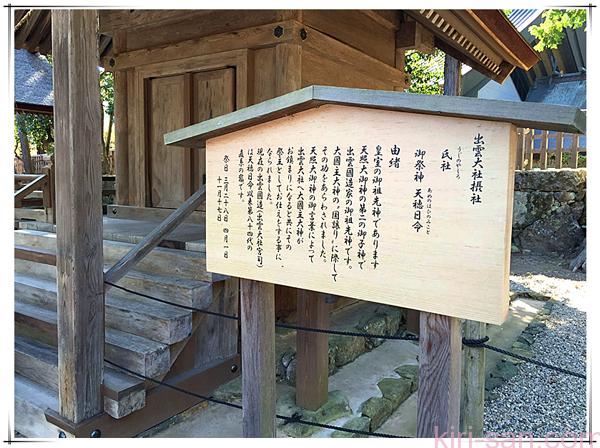 出雲大社摂社
氏社
うじのやしろ
御祭神 天穂日命
あめのほひのみこと
由緒
皇室の御祖光神であります
天照大御神の第二の御子神で
出雲國造家の御祖光神です。
大國主大神の"國譲り"に際して
その功をあらわされました。
天照大御神の御言葉によって
出雲大社へ大國主大神が
お鎮まりになると共にその
祭主としてお仕えをする事に
なられました。
現在の出雲國造(出雲大社宮司)
は天穂日命以来第八十四代の
直系の裔です。
祭日 二月二十八日 四月一日
十一月十七日
kiri-san.com